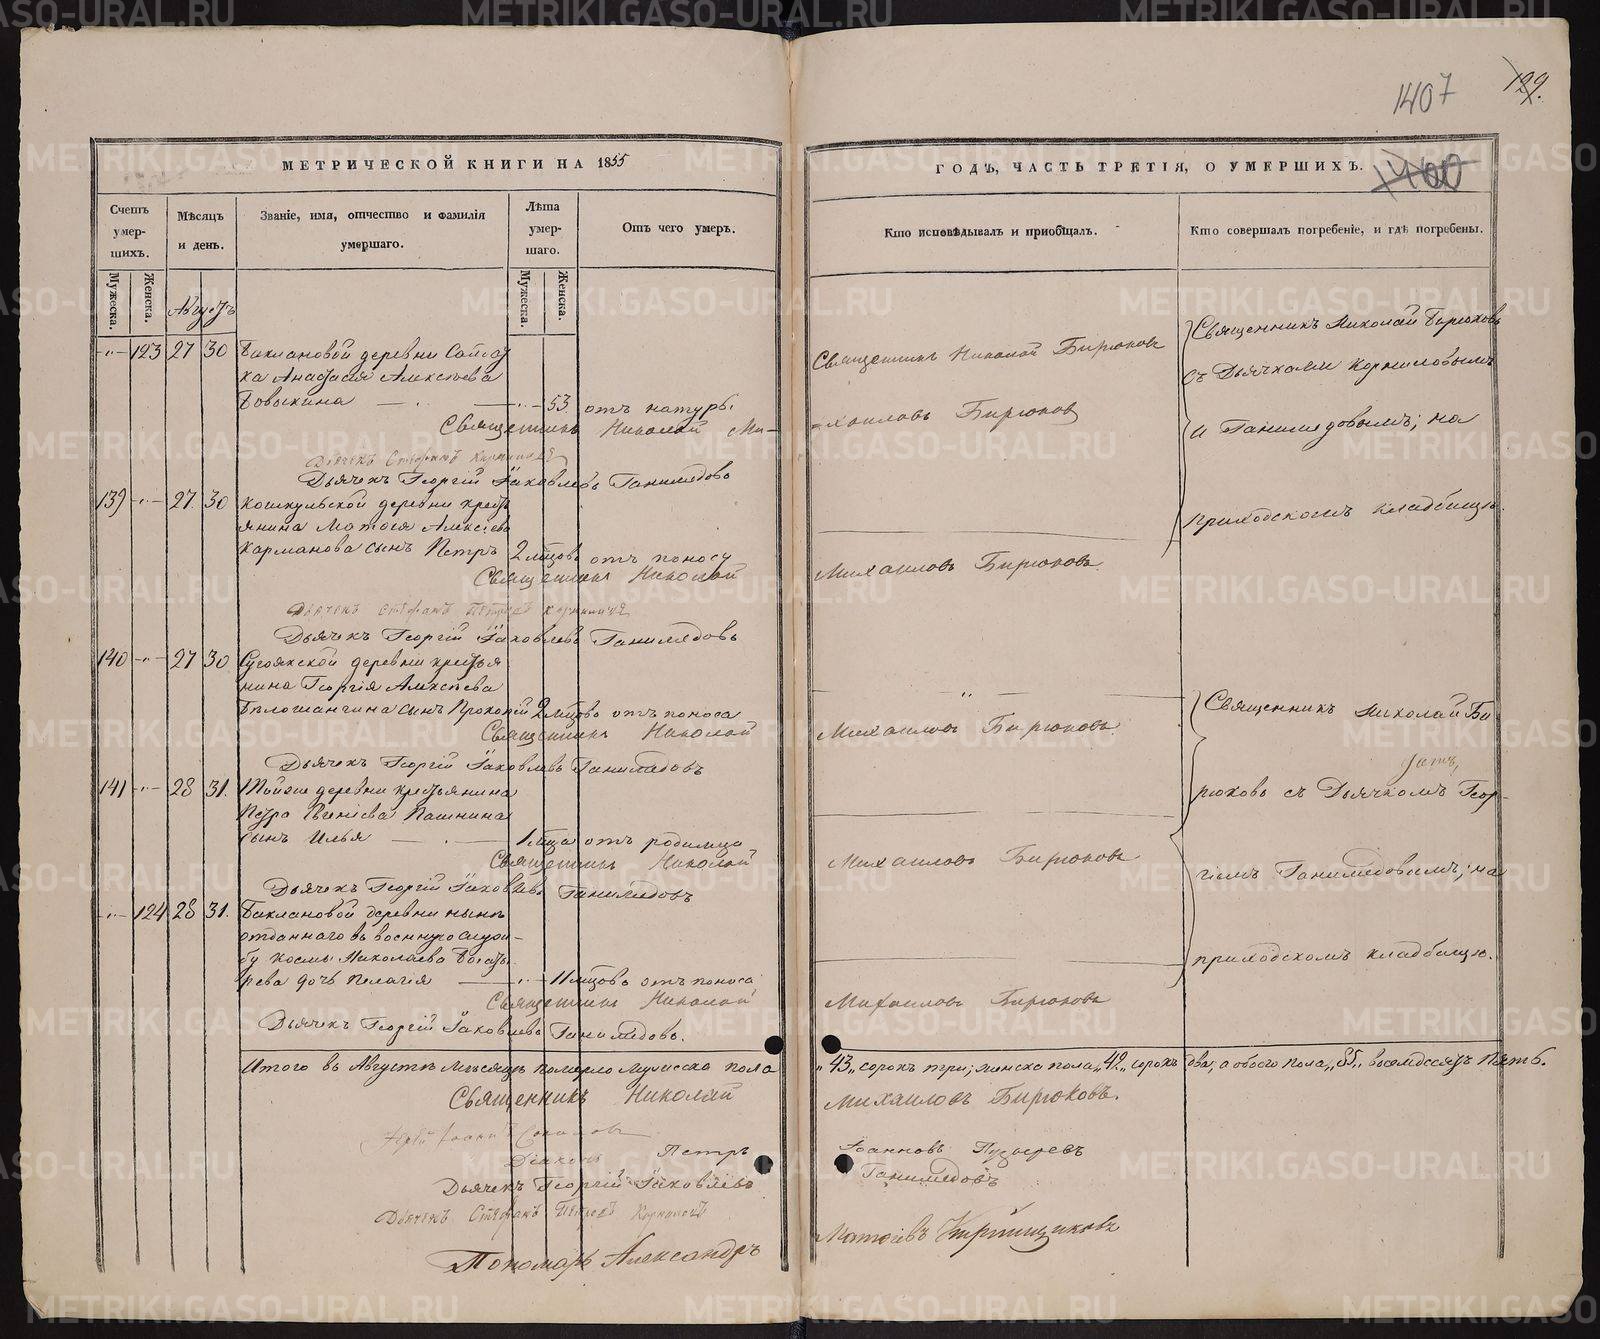 1407 129.
МЕТРИЧЕСКОЙ КНИГИ НА 1855
ГОДЪ, ЧАСТЬ ТРЕТІЯ, О УМЕРШИХЪ. 1400
Счетъ умер-шихъ.
Мужеска. Женска.
Мѣсяцъ и день.
Званіе, имя, отчество и фамилія умершаго.
Лѣта умер-шаго.
Мужеска. Женска.
Отъ чего умеръ.
Кто исповѣдывалъ и пріобщалъ.
Кто совершалъ погребеніе, и гдѣ погребены.
Августъ
123 27 30 Баклановой деревни
ка Анастасія Алексѣева
53 отъ натуры
Священникъ Николай Бирюковъ
Священникъ Николай Ми-
хаиловъ Бирюковъ
Дьячекъ Стефанъ
Дьячекъ Георгій Іаковлевъ Ганимедовъ
Священникъ Николай Бирюковъ
съ Дьячками Корниловымъ
и Ганимедовымъ; на
приходскомъ кладбищѣ.
139 27 30 деревни кресть
янина Матѳея Алексѣева
Карманова сынъ Петръ 2 мѣсцовъ отъ поносу
Священникъ Николай
Михаиловъ Бирюковъ
Дьячекъ Стефанъ Петровъ
Дьячекъ Георгій Іаковлевъ Ганимедовъ
140 27 30 Сугоякской деревни крестья
нина Георгія Алексѣева
сынъ Прокопій 2 мѣсцовъ отъ поноса
Священникъ Николай
Михаиловъ Бирюковъ
Дьячекъ Георгій Іаковлевъ Ганимедовъ
141 28 31. Тойже деревни крестьянина
Петра Пашнина
сынъ Илья 1 мѣсца отъ родимца
Священникъ Николай
Михаиловъ Бирюковъ
Дьячекъ Георгій Іаковлевъ Ганимедовъ
Священникъ Николай Би
рюковъ съ Дьячкомъ Геор-
гіемъ Ганимедовымъ; на
приходскомъ кладбищѣ.
124 28 31. Баклановой деревни нынѣ
отданнаго въ военную служ-
бу Космы Николаева Богаты
рева дочь Пелагія 11 мѣсцовъ отъ поноса
Священникъ Николай
Михаиловъ Бирюковъ
Дьячекъ Георгій Іаковлевъ Ганимедовъ.
Итого въ Августѣ мѣсяцѣ померло мужеска пола „43„ сорокъ три; женска пола „42„ сорокъ два, а обоего пола „85„ восемдесятъ пять.
Священникъ Николай Михаиловъ Бирюковъ.
Діаконъ Петръ Іоанновъ Пузыревъ
Дьячекъ Георгій Іаковлевъ Ганимедовъ
Дьячекъ Стефанъ Петровъ
Пономарь Александръ Матѳіевъ
METRIKI.GASO-URAL.RU